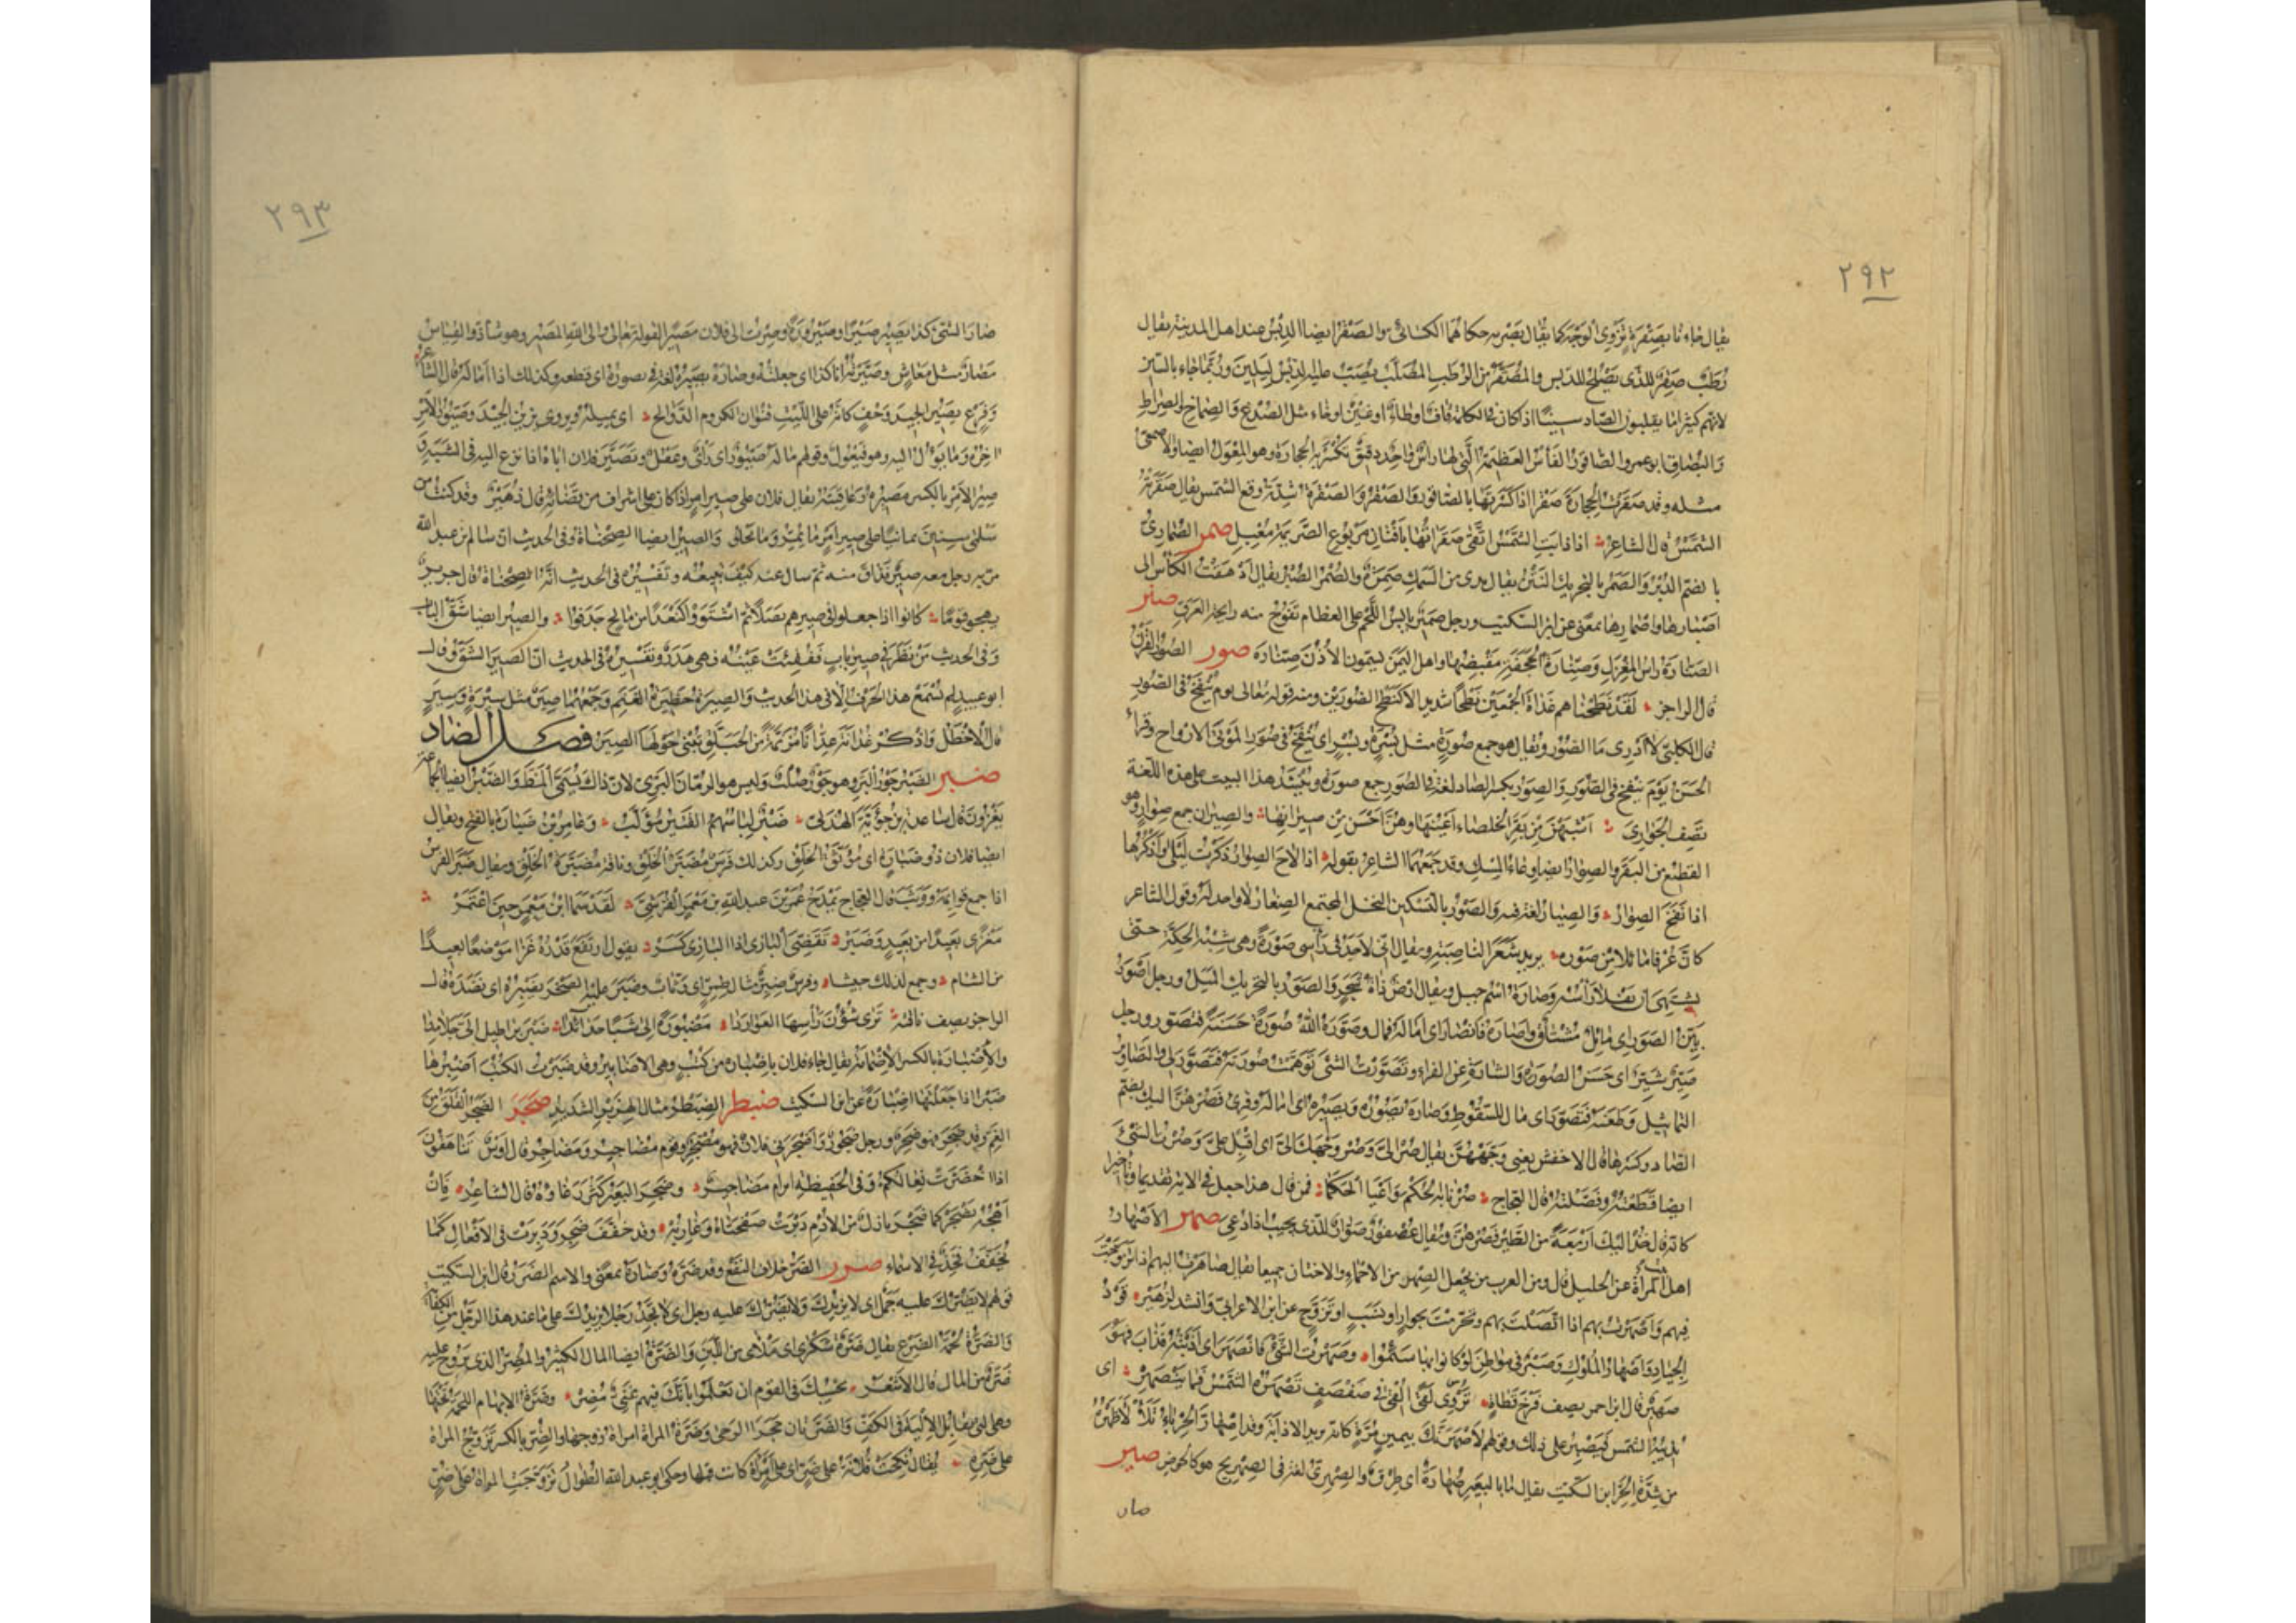 ٢٩٢
يقال جاءنا بصقرة تزوى الوجه كما يقال بصربة حكاهما الكسائي والصقر ايضا الدبس عند اهل المدينة يقال
رطب صقر للذى يصلح للدبس والمصقر من الرطب المصلب يصب عليه الدبس ليلين وربما جاء بالسين
لانهم كثيرا ما يقلبون الصاد سينا اذا كان في الكلمة قاف او طاء او غين او خاء مثل الصدغ والصماخ والصراط
والبصاق ابو عمرو الصاقور الفأس العظيمة التي لها رأس واحد دقيق تكسر به الحجارة وهو المعول ايضا والاصمعي
مثله وقد صقرت الحجارة صقرا اذا كسرتها بالصاقور والصقر والصقرة شدة وقع الشمس يقال صقرته
الشمس قال الشاعر اذا ذابت الشمس اتقى صقراتها بافنان مربوع الصريمة معبل صمر الصمارى
بالضم الدبر والصمر بالتحريك النتن يقال يدى من السمك صمرة والصمر الصبر يقال ادهقت الكأس الى
اصبارها واصمارها بمعنى عن ابن السكيت ورجل صمير يابس اللحم على العظام تفوح منه رايحة العرق صنر
الصنارة راس المغزل وصنارة الحجفة مقبضها واهل اليمن يسمون الاذن صنارة صور الصور القرن
قال الراجز لقد نطحناهم غداة الجمعين نطحا شديدا لا كنطح الصورين ومنه قوله تعالى يوم ينفخ في الصور
قال الكلبي لا ادرى ما الصور ويقال هو جمع صورة مثل بسرة وبسر اى ينفخ في صور الموتى الارواح وقرأ
الحسن يوم ينفخ في الصور والصور بكسر الصاد لغة في الصور جمع صورة وينشد هذا البيت على هذه اللغة
يصف الجوارى اشبهن من بقر الخلصاء اعينها وهن احسن من صيرانها والصيران جمع صوار وهو
القطيع من البقر والصوار ايضا وعاء المسك وقد جمعهما الشاعر بقوله اذا لاح الصوار ذكرت ليلى واذكرها
اذا نفح الصوار والصيار لغة فيه والصور بالتسكين النخل المجتمع الصغار لا واحد له وقول الشاعر
كأن عرفا مائلا من صوره يريد شعر الناصية ويقال اني لاجد في رأسي صورة وهي شبه الحكة حتى
يشتهى ان يفلى رأسه وصارة اسم جبل ويقال ارض ذات شجر والصور بالتحريك الميل ورجل اصور
بين الصور اى مائل مشتاق واصاره فانصار اى اماله فمال وصوره الله صورة حسنة فتصور ورجل
صير شير اى حسن الصورة والشارة عن الفراء وتصورت الشئ توهمت صورته فتصور لى والتصاوير
التماثيل وطعنه فتصور اى مال للسقوط وصاره يصوره ويصيره اى اماله وقرئ فصرهن اليك بضم
الصاد وكسرها قال الاخفش يعنى وجههن يقال صر الى وصر وجهك الى اى اقبل على وصرت الشئ
ايضا قطعته وفصلته قال العجاج صرنا به الحكم واعيا الحكما فمن قال هذا جعل في الاية تقديما وتأخيرا
كانه قال خذ اليك اربعة من الطير فصرهن ويقال عصفور صوار للذى يجيب اذا دعى صهر الاصهار
اهل بيت المرأة عن الخليل قال ومن العرب من يجعل الصهر من الاحماء والاختان جميعا يقال صاهرت اليهم اذا تزوجت
فيهم واصهرت بهم اذا اتصلت بهم وتحرمت بجوار او نسب او تزوج عن ابن الاعرابي وانشد لزهير قود
الجياد واصهار الملوك وصبر في مواطن لو كانوا بها سئموا وصهرت الشئ فانصهر اى اذبته فذاب فهو
صهير قال ابن احمر يصف فرخ قطاة تروى لقى القى في صفصف تصهره الشمس فما ينصهر اى
تذيبه الشمس فيصبر على ذلك وقولهم لاصهرنك بيمين مرة كانه يريد الاذابة وقد اصهار الحرباء تلألأ ظهره
من شدة الحر ابن السكيت يقال ما بالبعير صهارة اى طرق والصهرى لغة في الصهريج هو كالحوض صير
صار
٢٩٣
صار الشئ كذا يصير صيرا وصيرورة وصرت الى فلان مصيرا لقوله تعالى والى الله المصير وهو شاذ والقياس
مصار مثل معاش وصيرته انا كذا اى جعلته وصاره يصيره لغة في يصوره اى قطعه وكذلك اذا اماله قال الشاعر
وفرع يصير الجيد وحف كانه على الليت قنوان الكروم الدوالح اى يميله ويروى يزين الجيد وصيور الامر
اخره وما يؤول اليه وهو فيعول وقولهم ما له صيور اى رأى وعقل وتصير فلان اباه اذا نزع اليه في الشبه
صير الامر بالكسر مصيره وعاقبته يقال فلان على صير امر اذا كان على اشراف من قضائه قال زهير وقد كنت من
سلمى سنين ثمانيا على صير امر ما يمر وما يحلو والصير ايضا الصحناة وفي الحديث ان سالم بن عبد الله
مر به رجل معه صير فذاق منه ثم سال عنه كيف تبيعه وتفسيره في الحديث انه الصحناة قال جرير
يهجو قوما كانوا اذا جعلوا في صيرهم بصلا ثم اشتووا كنعدا من مالح جدفوا والصير ايضا شق الباب
وفي الحديث من نظر في صير باب ففقئت عينه فهى هدر وتفسيره في الحديث ان الصير الشق وقال
ابو عبيد لم نسمع هذا الحرف الا في هذا الحديث والصيرة حظيرة الغنم وجمعها صير مثل سيرة وسير
قال الاخطل واذكر غدانة عدانا مزنمة من الحبلق تبنى حولها الصير فصل الضاد
ضبر الضبر جوز البر وهو جوز صلب وليس هو الرمان البرى لان ذاك يسمى المظ والضبر ايضا الجماعة
يغزون قال ساعدة بن جؤية الهذلى ضبر لباسهم القتير مؤلب وعامر بن ضبارة بالفتح ويقال
ايضا فلان ذو ضبارة اى موثق الخلق وكذلك فرس مضبر الخلق وناقة مضبرة الخلق ويقال ضبر الفرس
اذا جمع قوائمه ووثب قال العجاج يمدح عمر بن عبد الله بن معمر القرشى لقد سما ابن معمر حين اعتمر
مغزى بعيدا من بعيد وضبر تقضى البازى اذا البازى كسر يقول ارتفع قدره غزا موضعا بعيدا
من الشام وجمع لذلك جيشا وفرس ضبر مثال طمر اى وثاب وضبر عليه الصخر يضبره اى نضده قال
الراجز يصف ناقة ترى شؤون رأسها العواردا مضبورة الى شبا حدائدا ضبر براطيل الى جلامدا
والاضبارة بالكسر الاضمامة يقال جاء فلان باضبارة من كتب وهي الاضابير وقد ضبرت الكتب اضبرها
ضبرا اذا جعلتها اضبارة عن ابن السكيت ضبطر الضبطر مثال الهزبر الشديد ضجر الضجر القلق من
الغم وقد ضجر فهو ضجر ورجل ضجور واضجرني فلان فهو مضجر وقوم مضاجر ومضاجير قال اوس تناهقون
اذا اخضرت نعالكم وفي الحفيظة ابرام مضاجير وضجر البعير كثر رغاؤه قال الشاعر فان
اهجه يضجر كما ضجر بازل من الادم دبرت صفحتاه وغاربه وقد خفف ضجر ودبرت في الافعال كما
يخفف فخذ في الاسماء ضرر الضر خلاف النفع وقد ضره وضاره بمعنى والاسم الضرر قال ابن السكيت
قولهم لا يضرك عليه جمل اى لا يزيدك ولا يضرك عليه رجل اى لا تجد رجلا يزيدك على ما عند هذا الرجل من الكفاية
والضرة لحمة الضرع يقال ضرة شكرى اى ملأى من اللبن والضرة ايضا المال الكثير والمضر الذى يروح عليه
ضرة من المال قال الاشعر بحسبك في القوم ان يعلموا بانك فيهم غنى مضر وضرة الابهام اللحمة تحتها
وهى التي تقابل الالية في الكف والضرتان حجرا الرحى وضرة المرأة امرأة زوجها والضر بالكسر تزوج المرأة
على ضرة يقال نكحت فلانة على ضر اى على امرأة كانت قبلها وحكى ابو عبد الله الطوال تزوجت المرأة على ضر